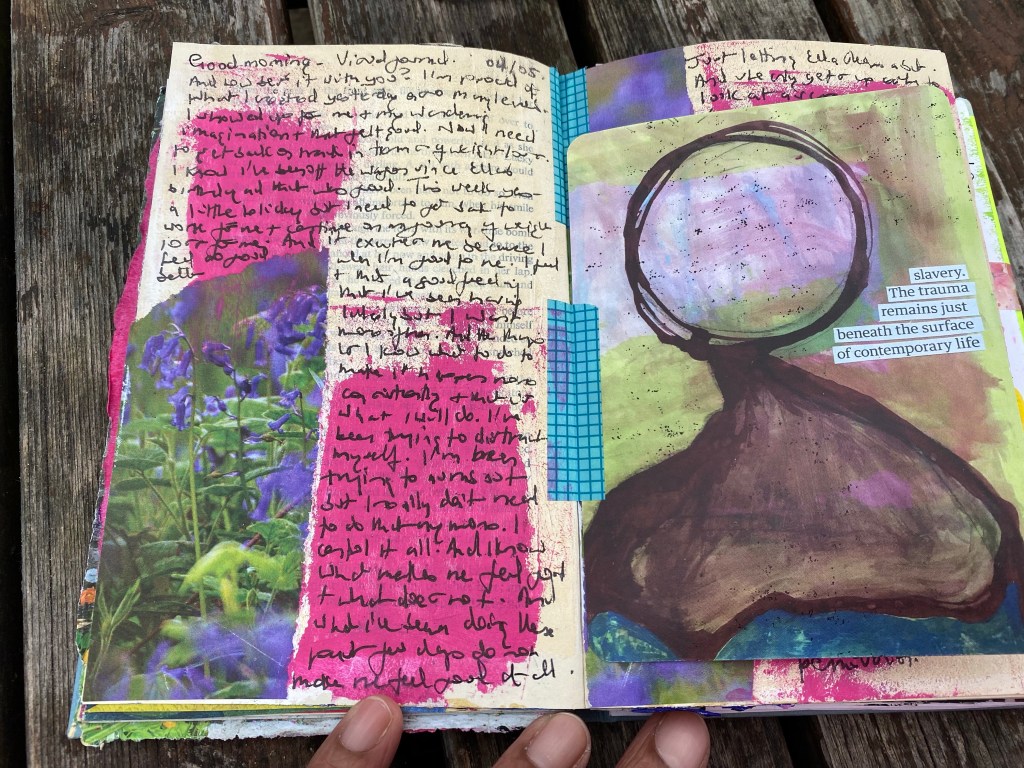 Good morning - Vivid journal. 04/05.
And how best it with you? I'm proud of
what I created yesterday on so many levels
I showed up for me + my wandering
imagination + that felt good. Now I need
to get back on track in terms of weight loss.
I know I've been off the wagon since Ella's
birthday and that was good. This week was
a little holiday but I need to get back to
work for me + continue on my journey of weight
loss for me. And excites me because I
feel so good when I'm good to me
better + that is a good feeling
that I've been having
lately but I want
more of them. And the thing
is I know what to do to
make it more
consistently + that is
what I will do. I've
been trying to distract
myself. I've been
trying to numb out
but I really don't need
to do that any more. I
can feel it all. And I know
what makes me feel good
+ what does not. And
what I've been doing these
past few days do not
make me feel good at all.
Just letting Ella sleep a bit.
And she only get up early to
look at
slavery.
The trauma
remains just
beneath the surface
of contemporary life